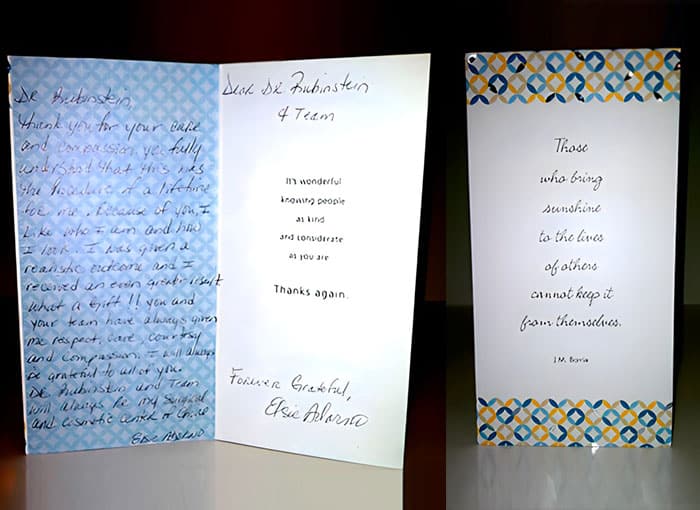 Dr Rubinstein,
Thank you for your care
and compassion. You fully
understood that this was
the procedure of a lifetime
for me. Because of you, I
like who I am and how
I look. I was given a
realistic outcome and I
received an even greater result
what a gift!! You and
your team have always given
me respect, care, courtesy
and compassion. I will always
be grateful to all of you.
Dr Rubinstein and Team
will always be my surgical
and cosmetic center of choice
Elsie
Dear Dr Rubinstein
& Team
It's wonderful
knowing people
as kind
and considerate
as you are.
Thanks again.
Forever Grateful,
Elsie
Those
who bring
sunshine
to the lives
of others
cannot keep it
from themselves.
J.M. Barrie